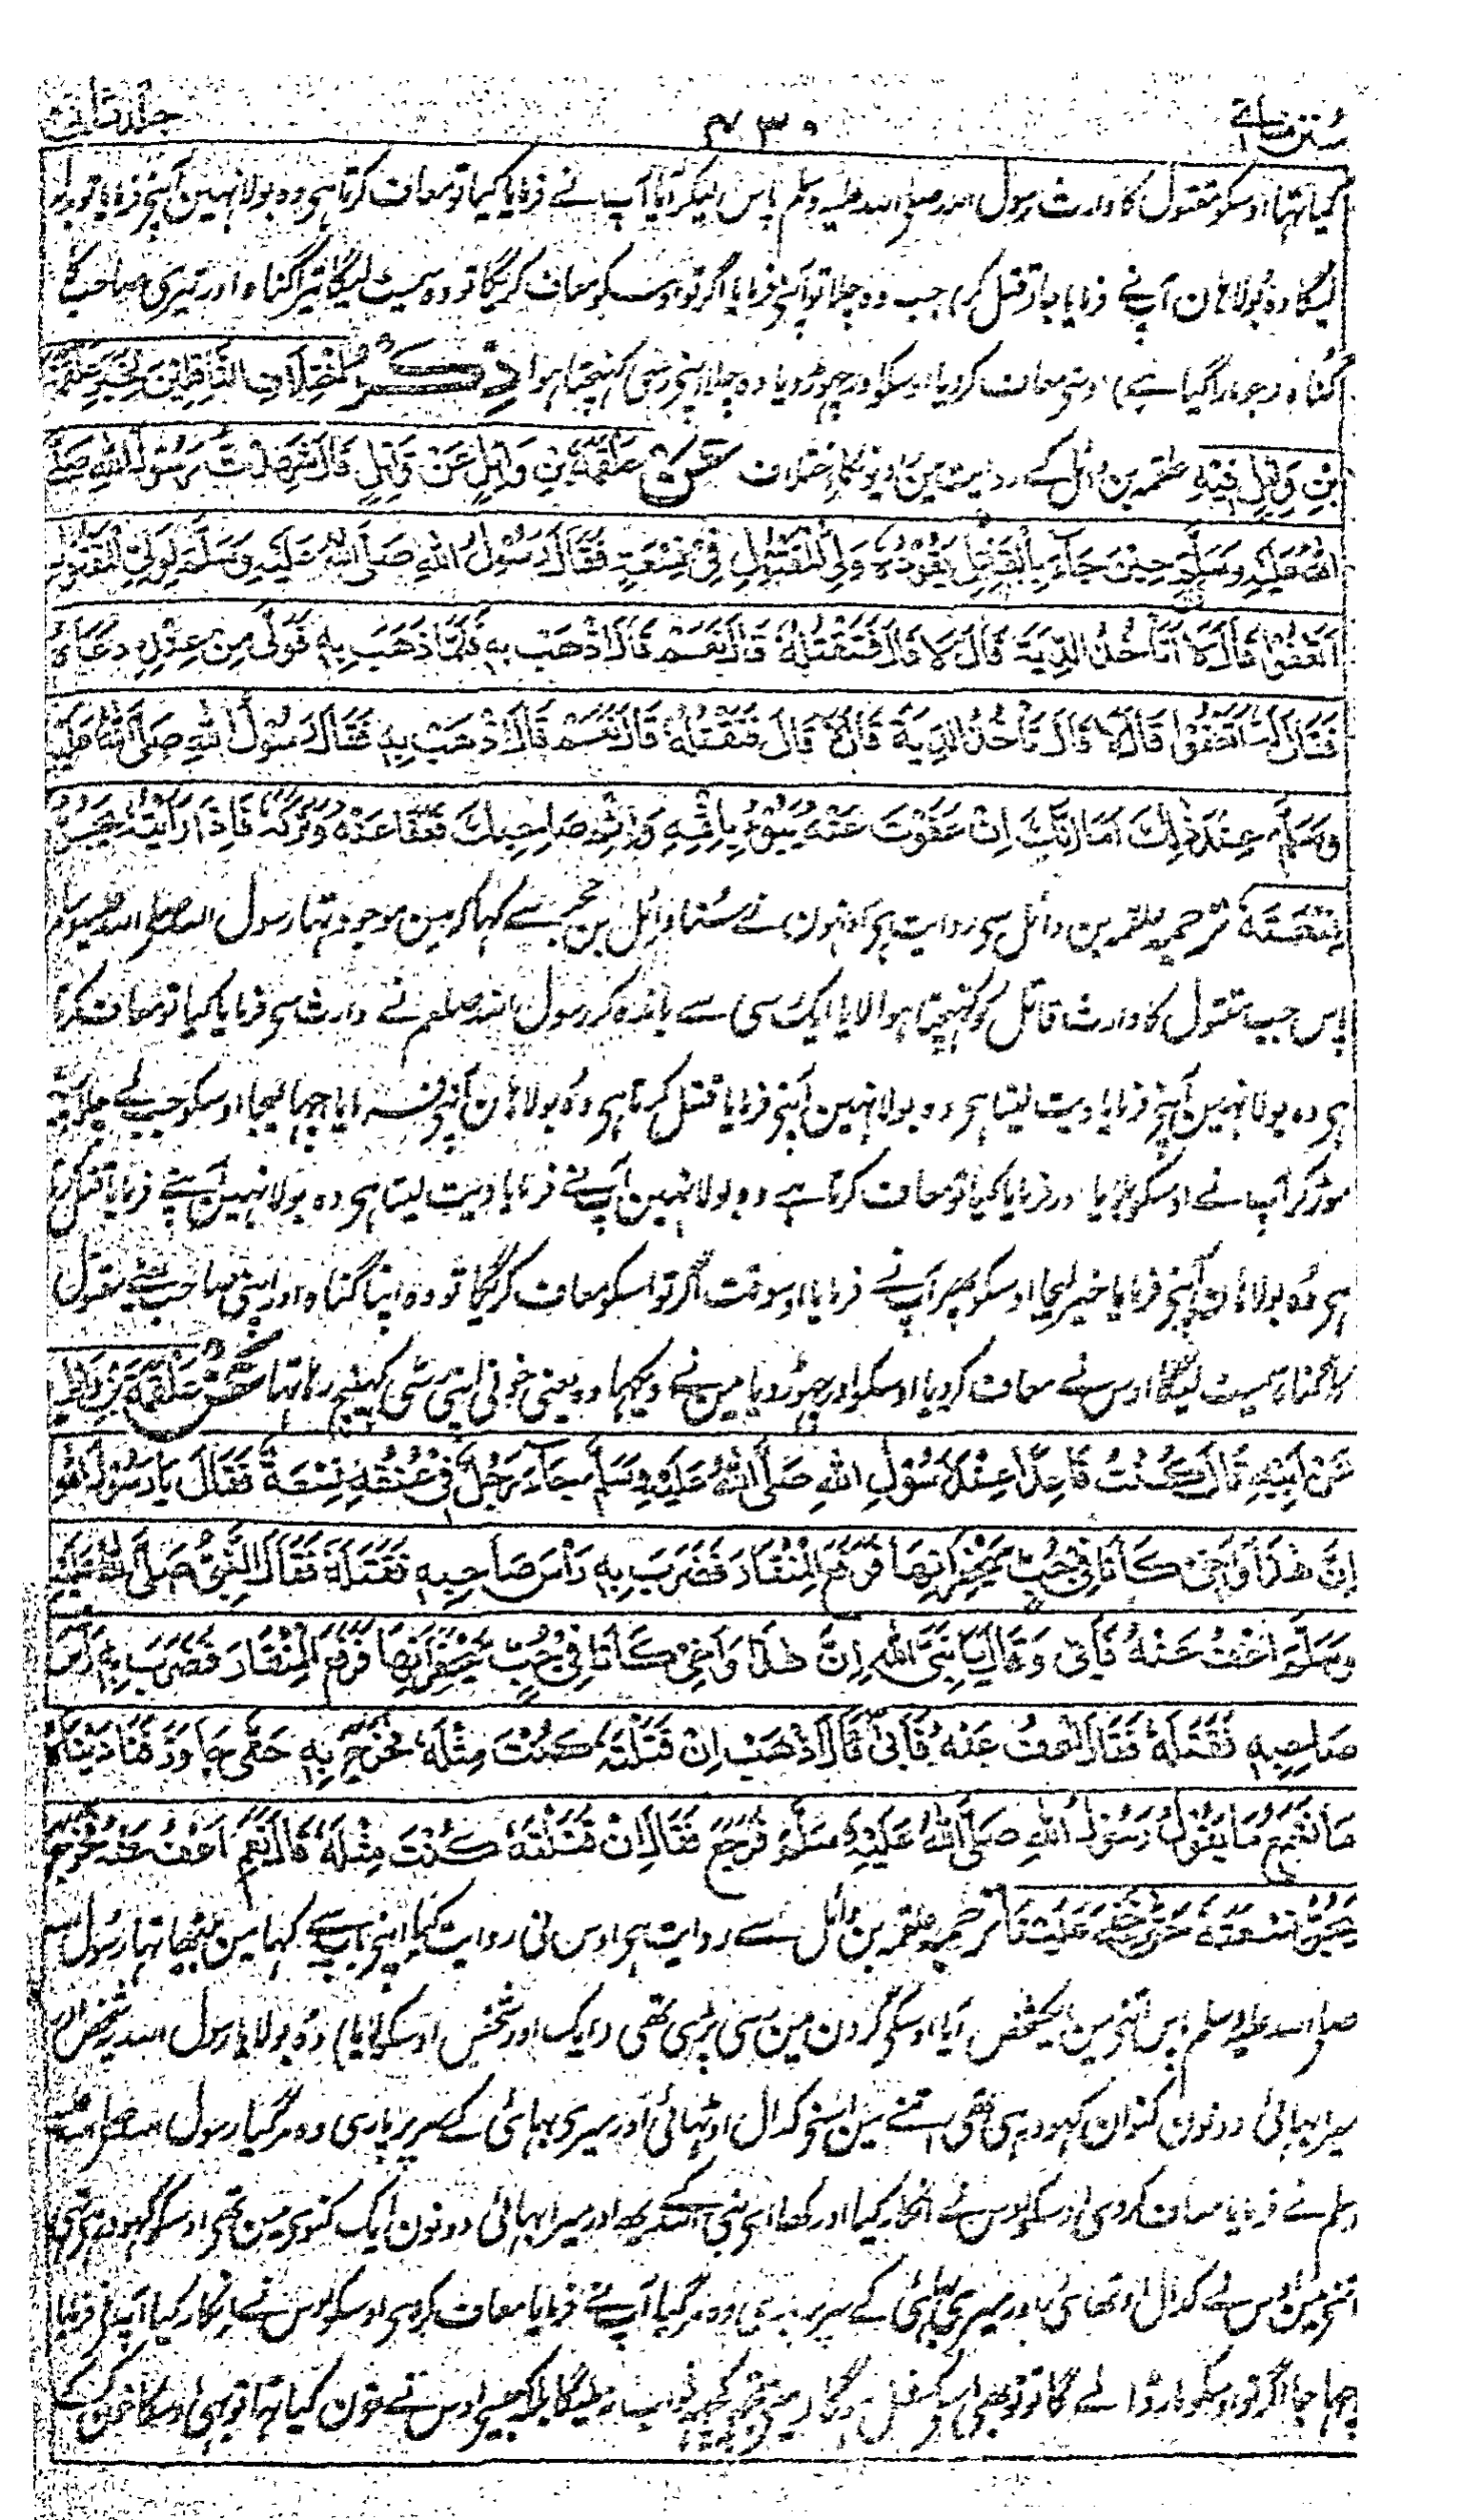 سنن نسائی ۴۳۰ جلد ثانی
کیا تہا اوسکو مقتول کا وارث رسول اللہ صلی اللہ علیہ وسلم پاس لیکر آیا آپ نے فرمایا کیا تو معاف کرتا ہی وہ بولا نہین آپنے فرمایا تو دیت
لیگا وہ بولا ہان آپنے فرمایا جا تو قتل کر جب وہ چلا تو آپنے فرمایا اگر تو اوسکو معاف کریگا تو وہ سمیٹ لیگا تیرا گناہ اور تیری صاحب کا
گناہ (جو مارا گیا ہے) اوسنی معاف کر دیا اوسکو اور چھوڑ دیا وہ چلا اپنی رسی کہینچتا ہوا ذِكْرُ اخْتِلَافِ النَّاقِلِيْنَ لِخَبَرِ عَلْقَمَةَ
بْنِ وَائِلٍ فِيْهِ علقمہ بن وائل کے روایت مین راویونکا اختلاف عَنْ عَلْقَمَةَ بْنِ وَائِلٍ عَنْ وَائِلٍ قَالَ شَهِدْتُ رَسُوْلَ اللّٰهِ صَلَّى
اللّٰهُ عَلَيْهِ وَسَلَّمَ حِيْنَ جَآءَ بِالْقَاتِلِ يَقُوْدُهٗ وَلِيُّ الْمَقْتُوْلِ فِيْ نِسْعَةٍ فَقَالَ رَسُوْلُ اللّٰهِ صَلَّى اللّٰهُ عَلَيْهِ وَسَلَّمَ لِوَلِيِّ الْمَقْتُوْلِ
اَتَعْفُوْ قَالَ لَا قَالَ اَتَاْخُذُ الدِّيَةَ قَالَ لَا قَالَ فَتَقْتُلُهٗ قَالَ نَعَمْ قَالَ اذْهَبْ بِهٖ فَلَمَّا ذَهَبَ بِهٖ فَوَلّٰى مِنْ عِنْدِهٖ دَعَاهُ
فَقَالَ اَتَعْفُوْ قَالَ لَا قَالَ تَاْخُذُ الدِّيَةَ قَالَ لَا قَالَ فَتَقْتُلُهٗ قَالَ نَعَمْ قَالَ اذْهَبْ بِهٖ فَقَالَ رَسُوْلُ اللّٰهِ صَلَّى اللّٰهُ عَلَيْهِ
وَسَلَّمَ عِنْدَ ذٰلِكَ اَمَا اِنَّكَ اِنْ عَفَوْتَ عَنْهُ يَبُوْءُ بِاِثْمِهٖ وَاِثْمِ صَاحِبِكَ فَعَفَا عَنْهُ وَتَرَكَهٗ فَاَنَا رَاَيْتُهٗ يَجُرُّ
نِسْعَتَهٗ ترجمہ علقمہ بن وائل سی روایت ہی اونہون نے سُنا وائل بن حجر سے کہا کہ مین موجود تہا رسول اللہ صلی اللہ علیہ وسلم
پاس جب مقتول کا وارث قاتل کو کہینچتا ہوا لایا ایک رسی سے باندہ کر رسول اللہ صلعم نے وارث سی فرمایا کیا تو معاف کرتا
ہی وہ بولا نہین آپنی فرمایا دیت لیتا ہی وہ بولا نہین آپنی فرمایا قتل کرتا ہی وہ بولا ہان آپنی فرمایا اچہا لیجا اوسکو جب لے چلا
موڑ کر آپ نے اوسکو بلایا اور فرمایا کیا تو معاف کرتا ہے وہ بولا نہین آپنے فرمایا دیت لیتا ہی وہ بولا نہین آپنے فرمایا قتل کرتا
ہی وہ بولا ہان آپنی فرمایا خیر لیجا اوسکو پھر آپ نے فرمایا اوسوقت اگر تو اسکو معاف کریگا تو وہ اپنا گناہ اور اپنی صاحب یعنی مقتول
کا گناہ سمیٹ لیگا اوس نے معاف کر دیا اوسکو اور چھوڑ دیا مین نے دیکہا وہ یعنی خونی اپنی رسی کہینچ رہا تہا عَنْ عَلْقَمَةَ بْنِ وَائِلٍ
عَنْ اَبِيْهِ قَالَ كُنْتُ قَاعِدًا عِنْدَ رَسُوْلِ اللّٰهِ صَلَّى اللّٰهُ عَلَيْهِ وَسَلَّمَ جَآءَ رَجُلٌ فِيْ عُنُقِهٖ نِسْعَةٌ فَقَالَ يَا رَسُوْلَ اللّٰهِ
اِنَّ هٰذَا وَاَخِيْ كَانَا فِيْ جُبٍّ يَحْفِرَانِهَا فَرَفَعَ الْمِنْقَارَ فَضَرَبَ بِهٖ رَاْسَ صَاحِبِهٖ فَقَتَلَهٗ فَقَالَ النَّبِيُّ صَلَّى اللّٰهُ عَلَيْهِ
وَسَلَّمَ اعْفُ عَنْهُ فَاَبٰى وَقَالَ يَا نَبِيَّ اللّٰهِ اِنَّ هٰذَا وَاَخِيْ كَانَا فِيْ جُبٍّ يَحْفِرَانِهَا فَرَفَعَ الْمِنْقَارَ فَضَرَبَ بِهٖ رَاْسَ
صَاحِبِهٖ فَقَتَلَهٗ فَقَالَ اعْفُ عَنْهُ فَاَبٰى قَالَ اذْهَبْ اِنْ قَتَلْتَهٗ كُنْتَ مِثْلَهٗ فَخَرَجَ بِهٖ حَتّٰى جَاوَزَ فَنَادَيْنَاهُ
اَمَا تَسْمَعُ مَا يَقُوْلُ رَسُوْلُ اللّٰهِ صَلَّى اللّٰهُ عَلَيْهِ وَسَلَّمَ فَرَجَعَ فَقَالَ اِنْ قَتَلْتُهٗ كُنْتُ مِثْلَهٗ قَالَ نَعَمْ اعْفُ عَنْهُ فَخَرَجَ
يَجُرُّ نِسْعَتَهٗ حَتّٰى خَفِيَ عَلَيْنَا ترجمہ علقمہ بن وائل سے روایت ہی اوس نی روایت کیا اپنے باپ سے کہا مین بیٹھا تہا رسول اللہ
صلی اللہ علیہ وسلم پاس اتنی مین ایک شخص آیا اوسکی گردن مین رسی پڑی تھی (ایک اور شخص اوسکو لایا) وہ بولا یا رسول اللہ یہ شخص اور
میرا بہائی دونون کنوان کہود رہی تھی اتنے مین اسنی کدال اوٹہائی اور میری بہائی کے سر پر ماری وہ مر گیا رسول اللہ صلی اللہ علیہ
وسلم نے فرمایا معاف کر دی اوسکو اوس نے انکار کیا اور کہا ای نبی اللہ کے یہ اور میرا بہائی دونون ایک کنوی مین تھی اوسکو کہود رہی تھی
اتنی مین اس نے کدال اوٹھائی اور میری بہائی کے سر پر ماری وہ مر گیا آپنے فرمایا معاف کر دی اوسکو اوس نے انکار کیا آپنی فرمایا
اچہا جا اگر تو اوسکو مار ڈالے گا تو تو بھی اوسکی مثل ہوگا (یعنی تجھی کچھ ثواب نہ ملیگا بلکہ جیسی اوس نے خون کیا تہا تو بھی اوسکا خون کرے